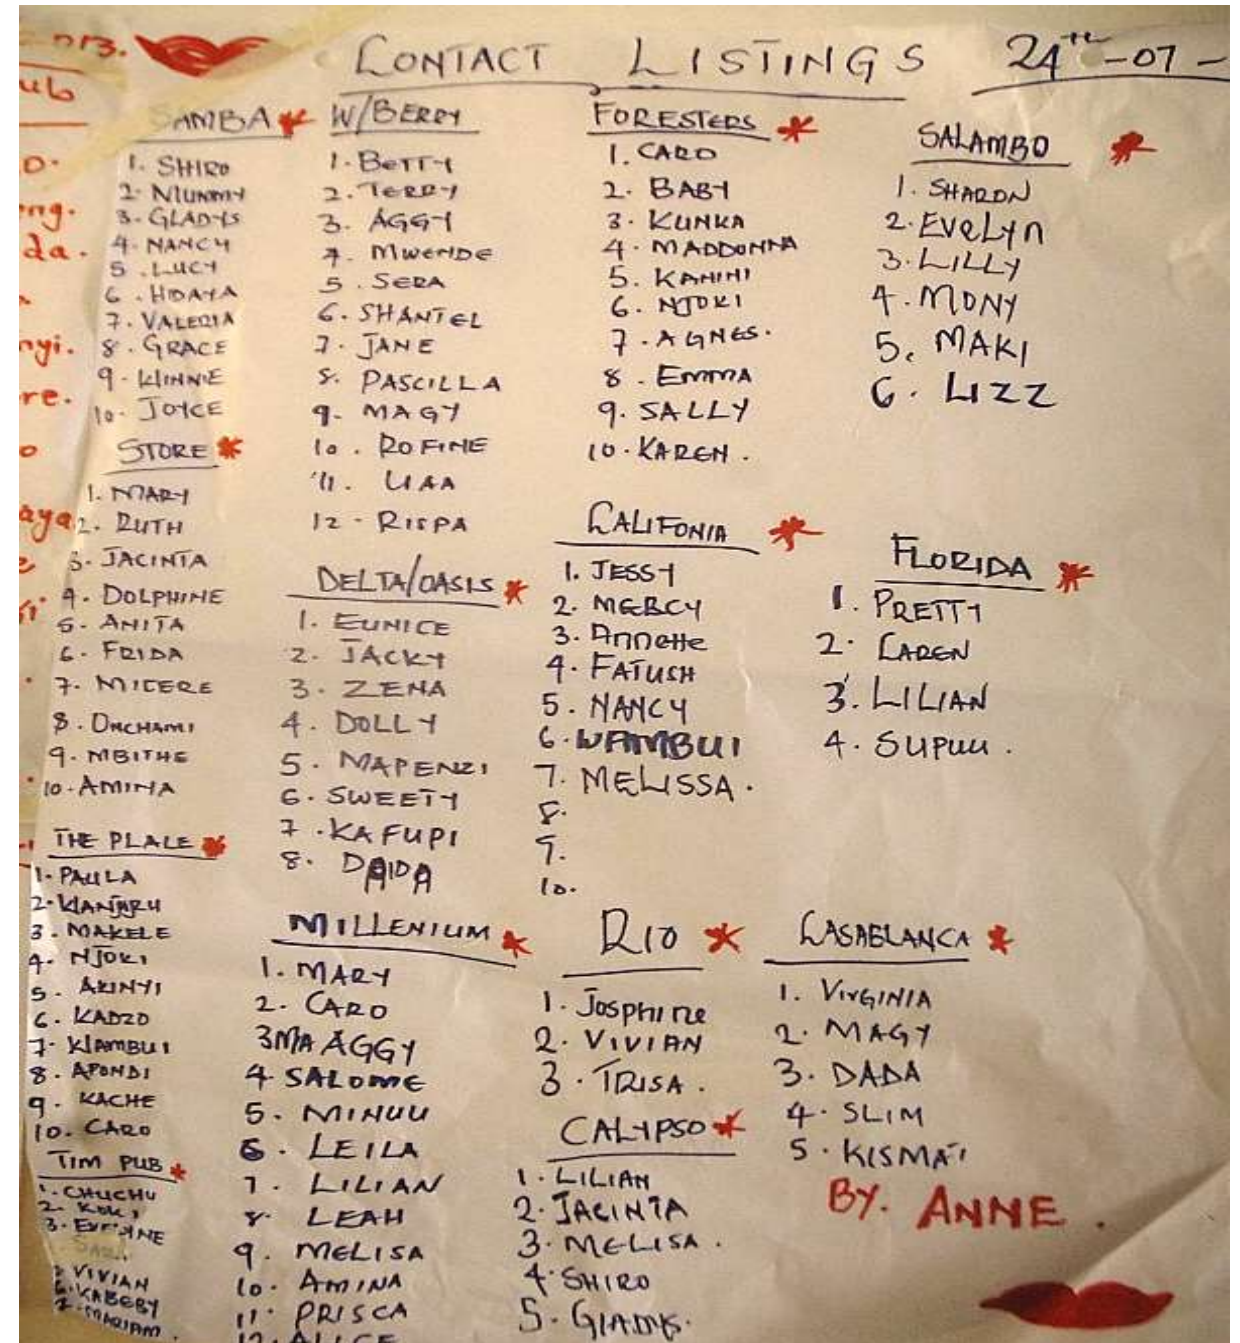 CONTACT LISTINGS 24TH-07-
SAMBA
1. SHIRO
2. NIUMMY
3. GLADYS
4. NANCY
5. LUCY
6. HIDAYA
7. VALERIA
8. GRACE
9. WINNIE
10. JOYCE
STORE
1. MARY
2. RUTH
3. JACINTA
4. DOLPHINE
5. ANITA
6. FRIDA
7. MICERE
8. ONCHAMI
9. MBITHE
10. AMINA
THE PLALE
1. PAULA
2. WANJIRU
3. MAKELE
4. NJOKI
5. AKINYI
6. KADZO
7. WAMBUI
8. APONDI
9. KACHE
10. CARO
TIM PUB
1. CHUCHU
2. KOKI
3.
VIVIAN
6. KABEBY
7. MARIAM.
W/BERRY
1. BETTY
2. TERRY
3. AGGY
4. MWENDE
5. SERA
6. SHANTEL
7. JANE
8. PASCILLA
9. MAGY
10. ROFINE
11. LISA
12. RISPA
DELTA/OASIS
1. EUNICE
2. JACKY
3. ZENA
4. DOLLY
5. MAPENZI
6. SWEETY
7. KAFUPI
8. DAIDA
MILLENIUM
1. MARY
2. CARO
3 MA AGGY
4 SALOME
5. MINUU
6. LEILA
7. LILIAN
8. LEAH
9. MELISA
10. AMINA
11. PRISCA
12. ALICE
FORESTERS
1. CARO
2. BABY
3. KUNKA
4. MADDONNA
5. KANINI
6. NJOKI
7. AGNES.
8. EMMA
9. SALLY
10. KAREN.
CALIFONIA
1. JESSY
2. MERCY
3. Annette
4. FATUSH
5. NANCY
6. WAMBUI
7. MELISSA.
8.
9.
10.
RIO
1. Josphine
2. VIVIAN
3. TRISA.
CALYPSO
1. LILIAN
2. JACINTA
3. MELISA.
4. SHIRO
5. GLADYS.
SALAMBO
1. SHARON
2. EVELYN
3. LILLY
4. MONY
5. MAKI
6. LIZZ
FLORIDA
1. PRETTY
2. CAREN
3. LILIAN
4. SUPUU.
CASABLANCA
1. VIRGINIA
2. MAGY
3. DADA
4. SLIM
5. KISMATI
BY. ANNE.